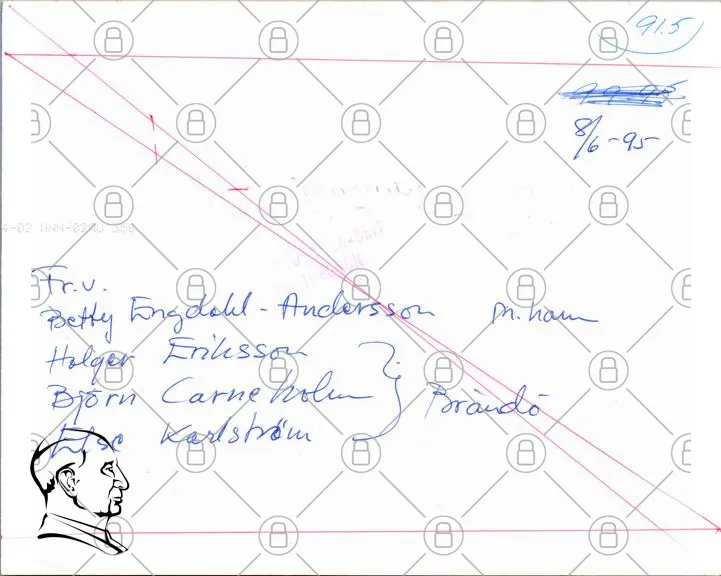 91.5
8/6-95
Fr.v.
Betty Engdahl-Andersson M.hamn
Holger Eriksson
Björn Carneholm Brändö
Else Karlström